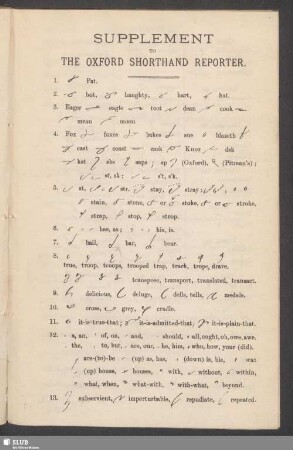 SUPPLEMENT
TO
THE OXFORD SHORTHAND REPORTER.
1. Pat.
2. but, haughty, hart, hat.
3. Eager eagle toot dean cook
mean moon
4. Fox faxes bakes one blameth
cast coast cook Knox dek
ket she saps sp (Oxford), (Pitman's);
st, sh; s't, s'k.
5. st, str. stay, stray;
stain, stone, stoke, or stroke,
strap, stop, strop.
6. has, as; his, is.
7. bail, bar, bear.
8.
true, troop, troops, trooped trap, track, trope, drave.
transpose, transport, translated, transact.
9. delicious, deluge, dells, tells, medals.
10. cross, grey, cradle.
11. it-is-true-that; it-is-admitted-that; it-is-plain-that.
12. a, an, of, on, and, should, all, ought, oh, owe, awe.
the, to, but, are, our, he, him, who, how, your (did).
are-(to)-be (up) as, has, (down) is, his, was
(up) house, houses, with, without, within,
what, when, what-with, with-what, beyond.
13. subservient, imperturbable, repudiate, repeated.
SLUB